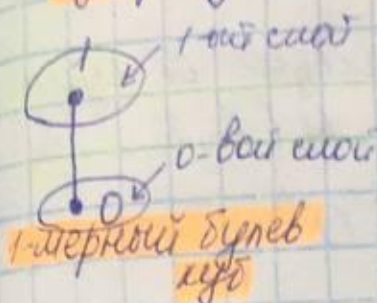 1
1-ый слой
0-вой слой
0
1-мерный булев
куб